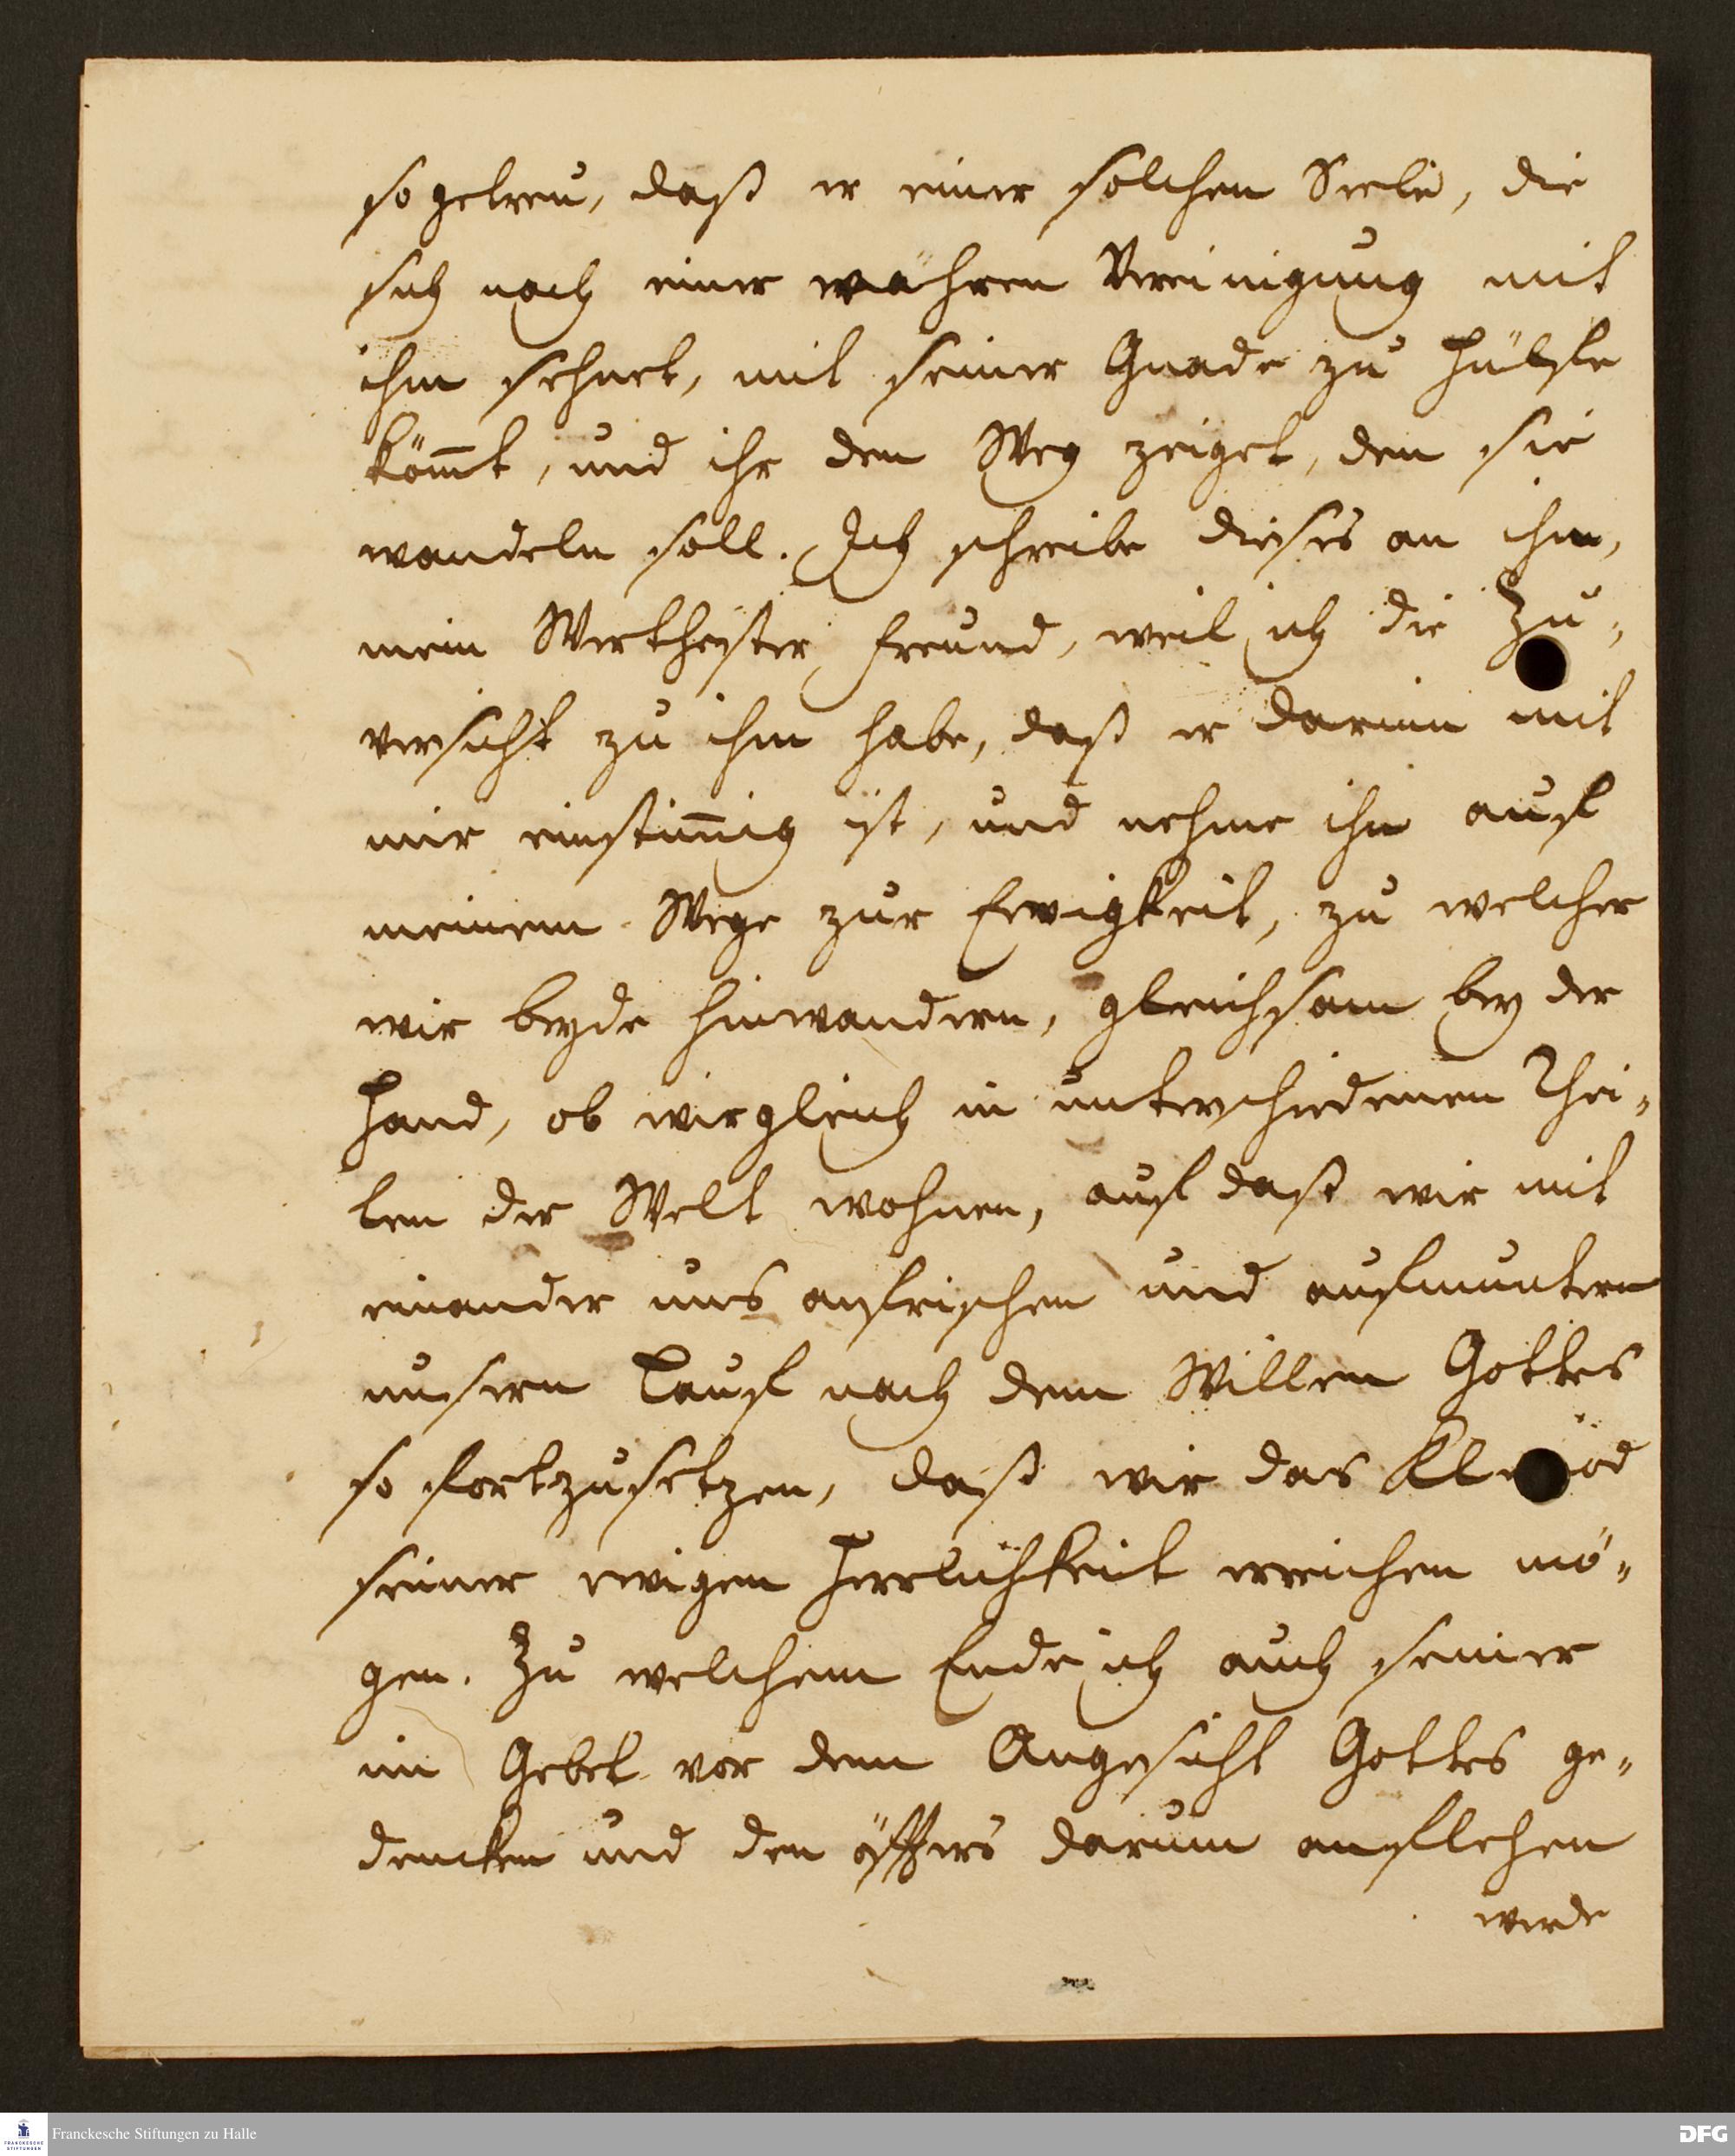 so getreu, daß er einer solchen Seele, die
sich nach einer wahren Vereinigung mit
ihm sehnet, mit seiner Gnade zu Hülffe
köm̅t, und ihr den Weg zeiget, den sie
wandeln soll. Ich schreibe dieses an ihm,
mein Werthester Freund, weil ich die Zu-
versicht zu ihm habe, daß er darinn mit
mir einstim̅ig ist, und nehme ihn auff
meinem Wege zur Ewigkeit, zu welcher
wir beyde hinwandern, gleichsam bey der
Hand, ob wir gleich in unterschiedenen Thei-
len der Welt wohnen, auff daß wir mit
einander uns anfrischen und aufmuntern
unsern Lauff nach dem Willen Gottes
so fortzusetzen, daß wir das Kleinod
seiner ewigen Herrlichkeit erreichen mö-
gen. Zu welchem Ende ich auch seiner
im Gebet vor dem Angesicht Gottes ge-
dencken und den öffters darum anflehen
werde
Franckesche Stiftungen zu Halle
DFG